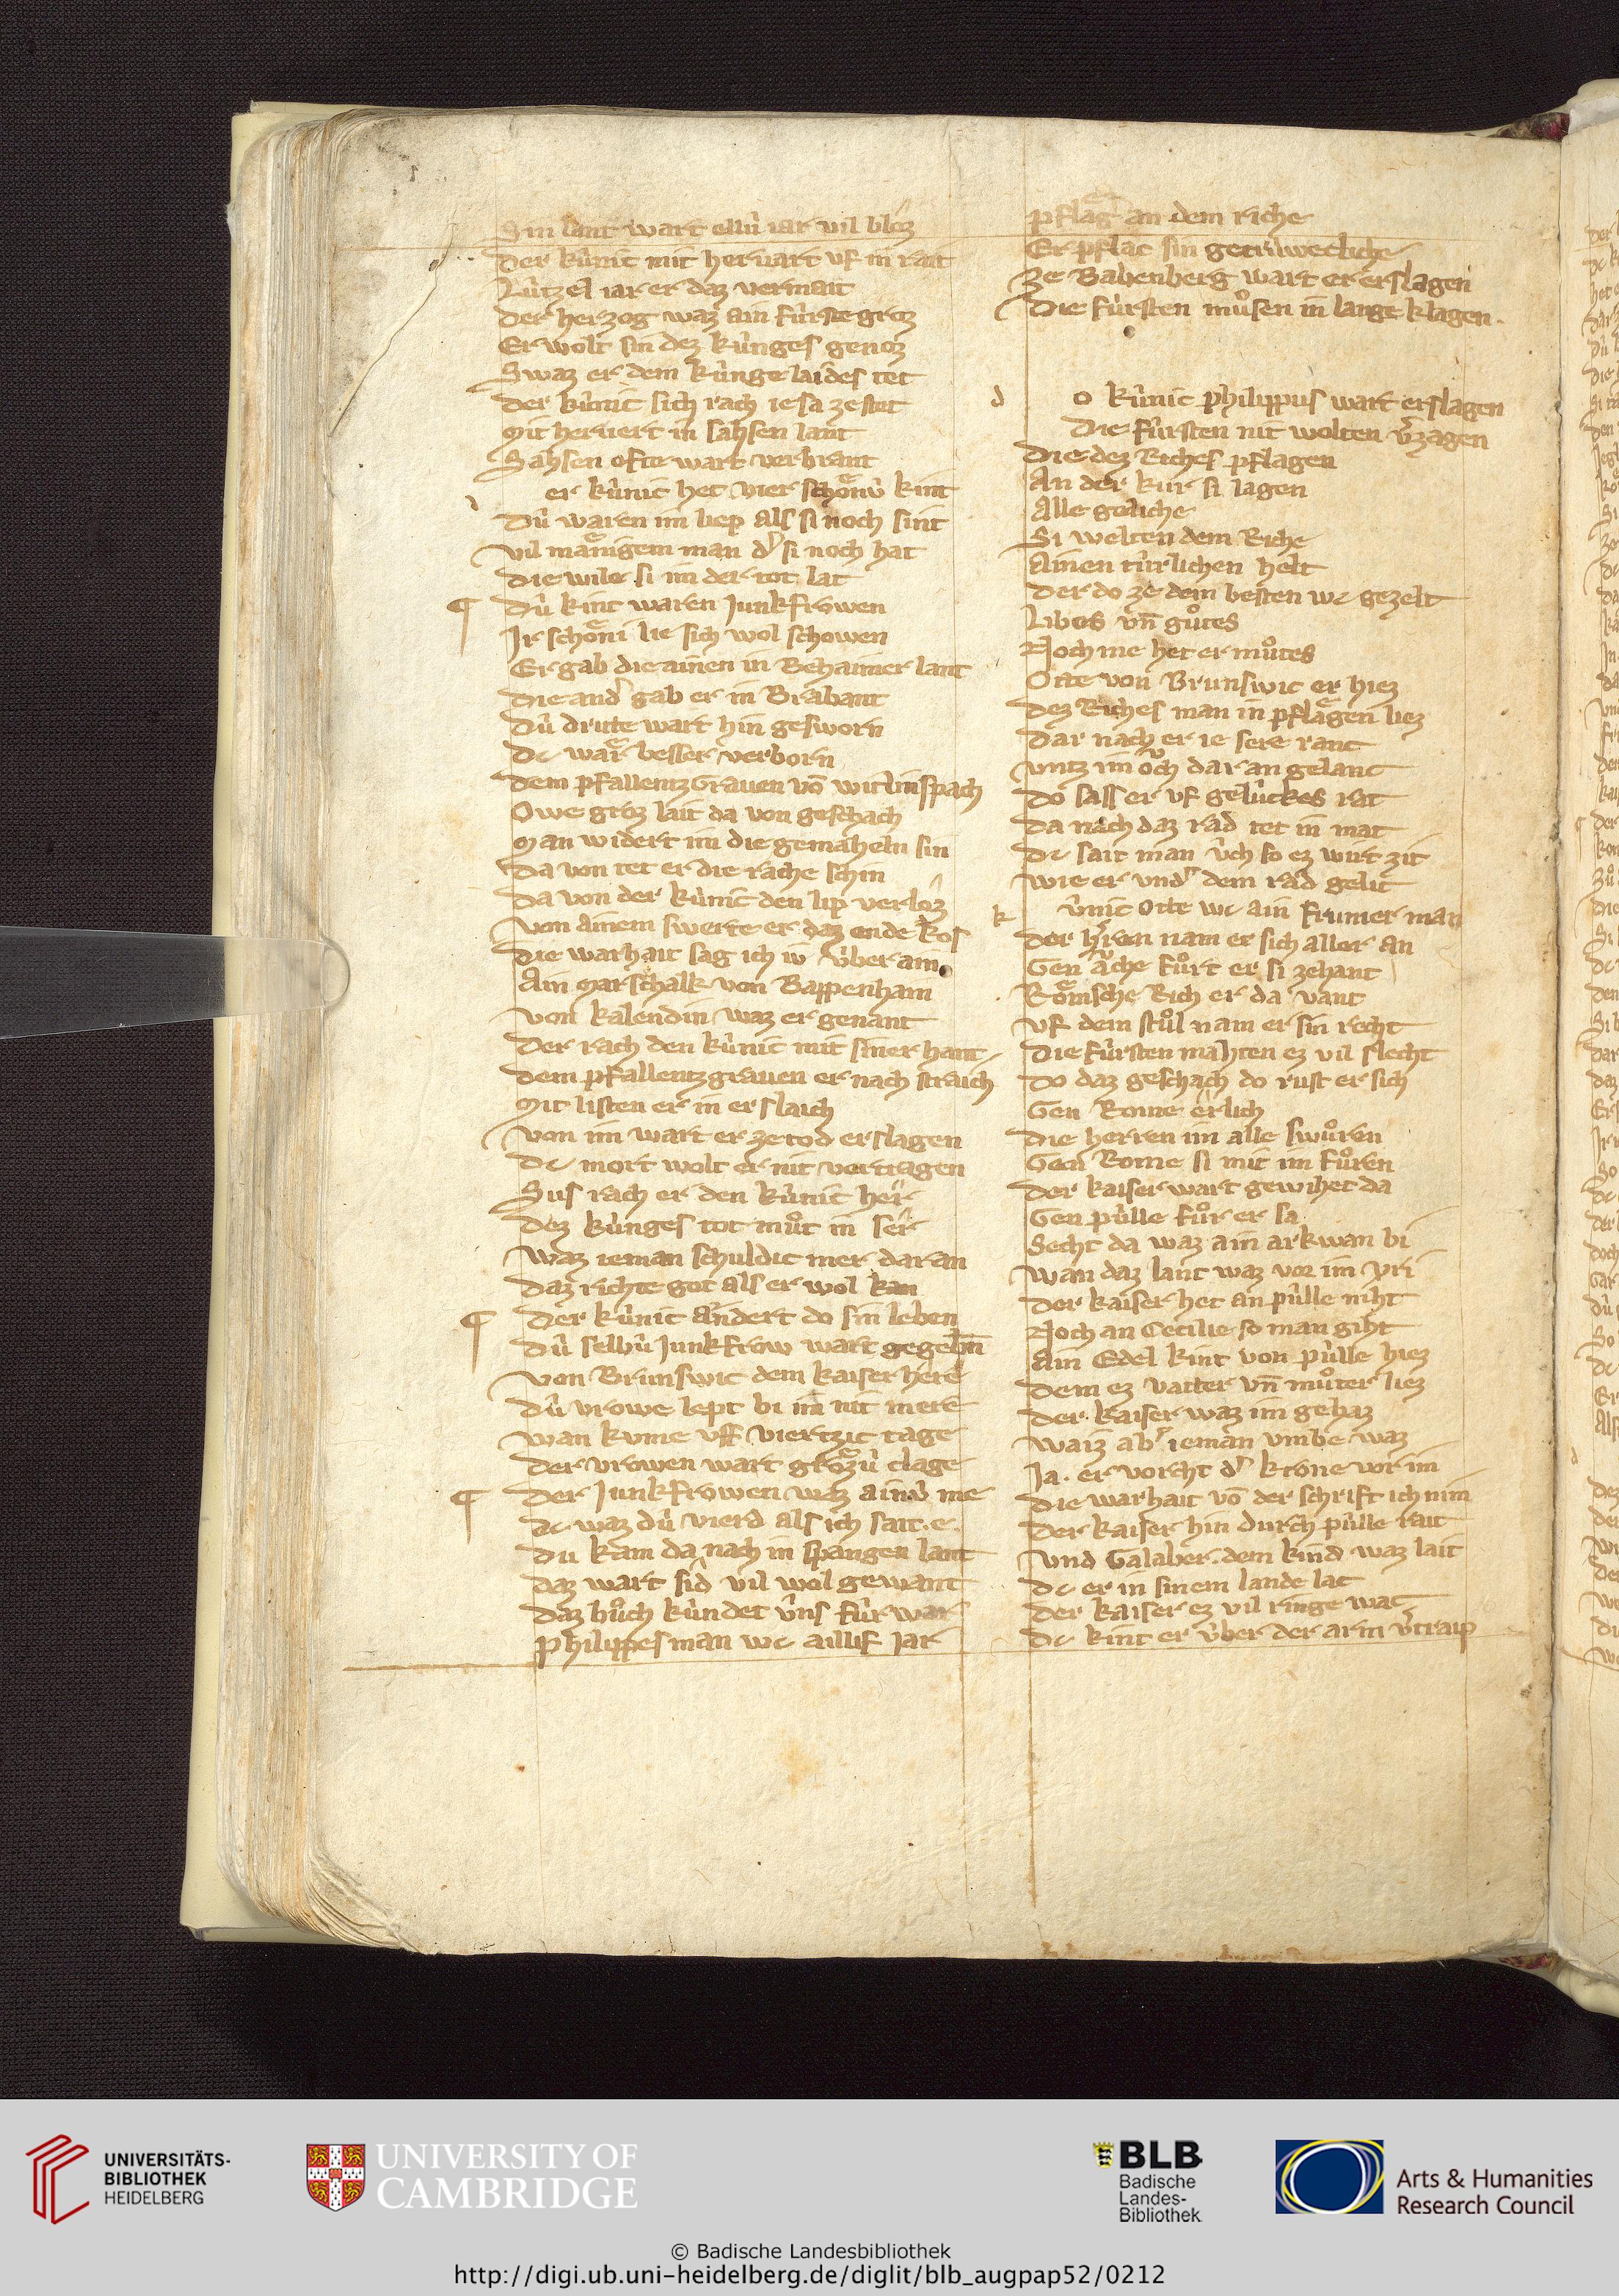 Sin lant wart ellú iar vil bloz
Der kúnic mit heruart vf in rait
Lútzel iar er daz vermait
Der herzog waz ain fúrste groz
Er wolt sin dez kúnges genoz
Swaz er dem kúnge laides tet
Der kúnic sich rach ie sa ze stet
Mit heruert in sahsen lant
Sahsen ofte wart verbrant
er kúnic het vier schoͤnú kint
Dú waren im liep als si noch sint
Vil manigem man dˀ si noch hat
Die wile si im der tot lat
¶ Dú kint waren Junkfrowen
Jr schoͤni lie sich wol schowen
Er gab die ainen in Behaimer lant
Die andˀ gab er in Brabant
Dú dritte wart hin gesworn
Dc waͤr besser verborn
Dem pfallentzGrauen vō witlinspach
Owe groz lait da von geschach
Man widert im die gemaheln sin
Da von tet er die rache schin
Da von der kúnic den lip verloz
Von ainem swerte er daz ende kos
Die warhait sag ich iv úber ain
Ain Marschalk von Bappenhain
Von kalendin waz er genant
Der rach den kúnic mit siner hant
Dem pfallentzgrauen er nach straich
Mit listen er in erslaich
Von im wart er ze tod erslagen
Dc mort wolt er nit vertragen
Sus rach er den kúnic her
Dez kúnges tot muͦt in ser
Waz ieman schuldic mer daran
Daz richte got als er wol kan
¶ Der kúnic andert do sin leben
Dú selbú Junkfrow wart gegebn̄
Von Brunswic dem kaiser here
Dú vrowe lept bi im nit mere
Wan kvme vff viertzic tage
Der vrowen wart groͤzú clage
¶ Der Junkfrowen waz ainú me
Dc waz dú vierd als ich sait e.
Du kam da nach in spangen lant
Daz wart sid vil wol gewant
Daz buͦch kúndet úns fúr war
Philippes man wc aillif Jar
pflag an dem riche
Er pflac sin getrúweclich
Ze Babenberg wart er erslagen
Die fúrsten muͦsen in lange klagen.
d o kúnic philippus wart erslagen
Die fúrsten nit wolten v̄zagen
Die dez Riches pflagen
An der kúr si lagen
Alle geliche
Si welten dem Riche
Ainen túrlichen helt
Der do ze dem besten wc gezelt
Libes vn̄ guͦtes
Noch me het er muͦtes
Otte von Brunswic er hiez
Dez Riches man in pflaͤgen liez
Dar nach er ie sere ranc
Vntz im oͮch dar an gelanc
Do sass er vf gelúckes rat
Da nach daz rad tet in mat
Dc sait man v́ch so ez wirt zit
Wie er vndˀ dem rad gelit
k únic Otte wc ain frumer man
Der hˀren nam er sich aller an
Gen ache fuͦrt er si zehant
Roͤmsche Rich er da vant
Vf dem stuͦl nam er sin recht
Die fúrsten mahten ez vil slecht
Do daz geschach do rust er sich
Gen Rome erlich
Die herren im alle swuͦren
Gen Rome si mit im fuͦren
Der kaiser wart gewihet da
Gen púlle fuͦr er sa
Secht da waz ain arkwan bi
Wan daz lant waz vor im vri
Der kaiser het an púlle niht
Noch an Cecilie so man giht
Ain Edel kint von púlle hiez
Dem ez vatter vn̄ muͦter liez
Der kaiser waz im gehaz
Waiz abˀ ieman vmbe waz
Ja. er vorcht dˀ krone vor im
Die warhait vō der schrift ich nim
Der kaiser hin durch púlle rait
Vnd Galaber. dem kind waz lait
Dc er in sinem lande lac
Der kaiser ez vil ringe wac
Dc kint er úber der arm v̄traip
UNIVERSITÄTS-
BIBLIOTHEK
HEIDELBERG
UNIVERSITY OF
CAMBRIDGE
BLB
Badische
Landes-
Bibliothek
Arts & Humanities
Research Council
© Badische Landesbibliothek
http://digi.ub.uni-heidelberg.de/diglit/blb_augpap52/0212